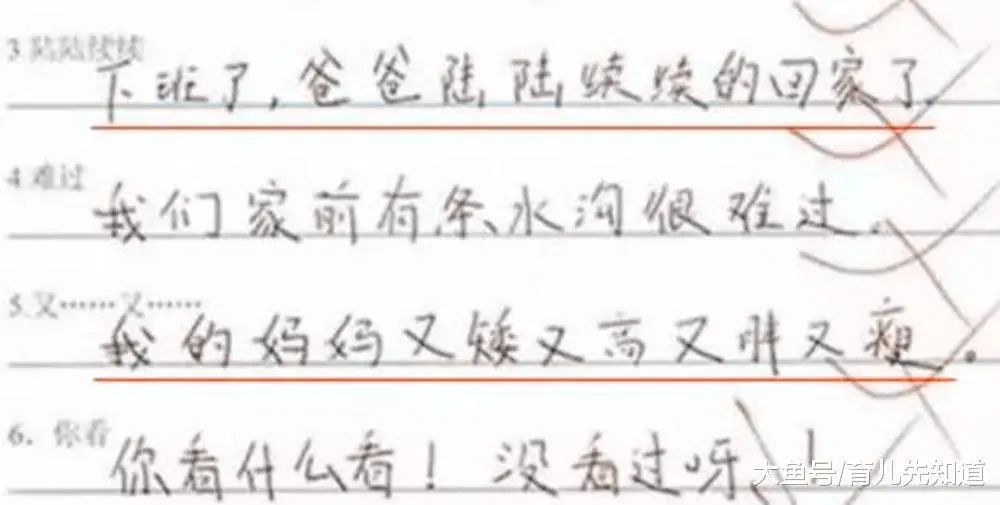 3 陆陆续续
下班了,爸爸陆陆续续的回家了.
4 难过
我们家前有条水沟很难过.
5.又……又……
我的妈妈又矮又高又胖又瘦.
6. 你看
你看什么看!没看过呀!
大鱼号/育儿先知道